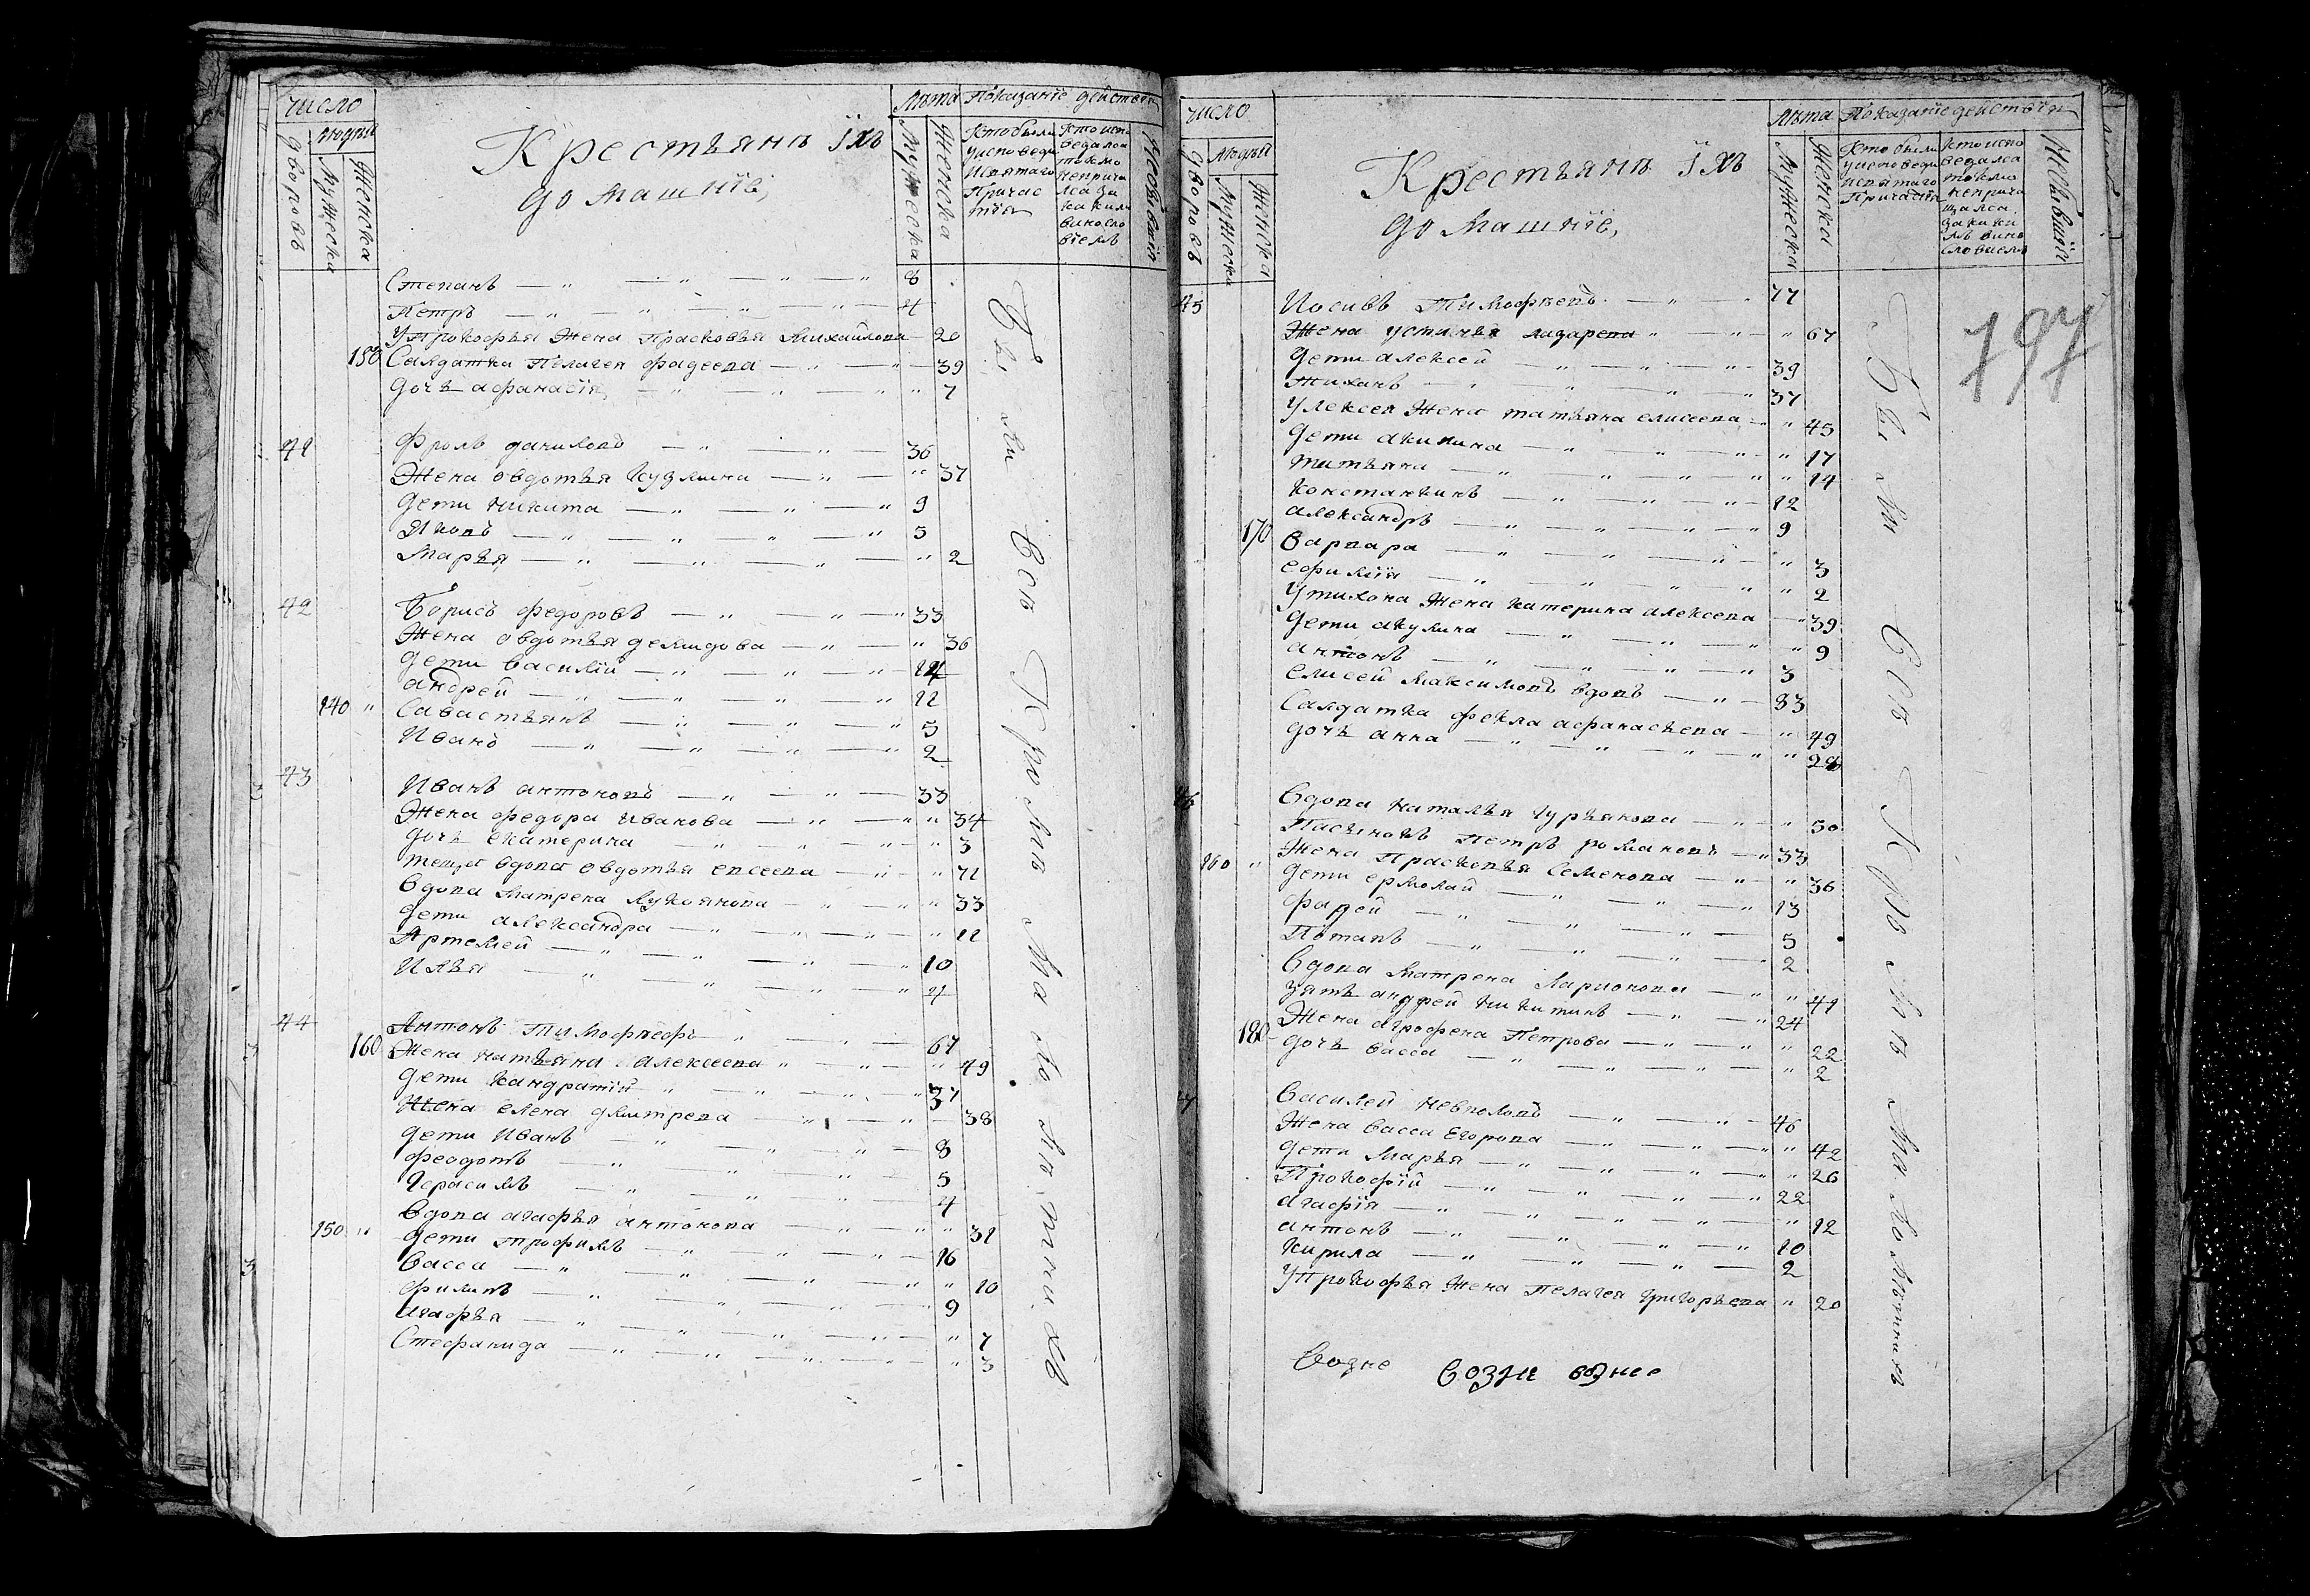 Число
Людей
дворовъ
Мужеска
Женска
Крестьянъ їхъ
до машнїе,
Лѣта Показанїе действия
Мужеска
Женска
Кто были у исповеди и святаго Причастия
Кто исповедался токмо непричащался за какимъ винословиемъ
Небывшiи
Степанъ 8
Петръ 4
У Прокофья жена Прасковья Михайлова 20
130 Салдатка Пелагея Фадеева 39
дочь афанасїя 7
41 Фролъ данилова 36
Жена овдотья кузмина 37
дети никита 9
Яковъ 5
Марья 2
42 Борисъ федоровъ 33
Жена овдотья демидова 36
дети василий 14
андрей 11
140 " Савастьянъ 5
Иванъ 2
43 Иванъ антоновъ 33
Жена федора иванова 34
дочь екатерина 3
теща вдова овдотья евсеева 71
Вдова матрена лукоянова 33
дети александра 11
Артемей 10
Илья 4
44 Антонъ Тимофѣефъ 67
160 Жена татьяна алексеева 49
дети кандратїй 37
Жена елена дмитрева 38
дети иванъ 8
феодотъ 5
Герасимъ 4
Вдова агафья антонова 31
150 " дети трофимъ 16
Васса 10
филипъ 9
агафья 7
Стефанида 3
Были Всѣ Кромѣ Малолѣтнихъ
Число
Людей
дворовъ
Мужеска
Женска
Крестьянъ їхъ
до машнїе,
Лѣта Показанїе действїя
Мужеска
Женска
Кто были у исповеди и святаго Причастїя
Кто исповедался токмо непричащался за какимъ винословиемъ
Небывшiи
797
45 Иосивъ Тимофѣевъ 77
Жена устинья лазарева 67
дети алексей 39
Тиханъ 37
У лексея жена татьяна елисеева 45
дети акилина 17
татьяна 14
константинъ 12
александръ 9
170 Варвара 3
ефимїя 2
У тихона жена катерина алексеева 39
дети акулина 9
антонъ 3
елисей максимовъ вдовъ 83
Салдатка фекла афанасьева 49
дочь анна
46 Вдова наталья гурьянова 50
Пасынокъ Петръ романовъ 33
160 " Жена Прасковья Семенова 36
дети ермолай 13
фадей 5
Потапъ 2
Вдова матрена Ларионова 41
зять андрей никитинъ 24
180 Жена агрофена Петрова 22
дочь васса 2
47 Василей неволовъ 46
Жена васса егорова 42
дети марья 26
Прокофїй 22
агафїя 12
антонъ 10
кирила 2
У Прокофья жена пелагея григорьева 20
Возне возне вознее
Были Всѣ Кромѣ Малолѣтнихъ